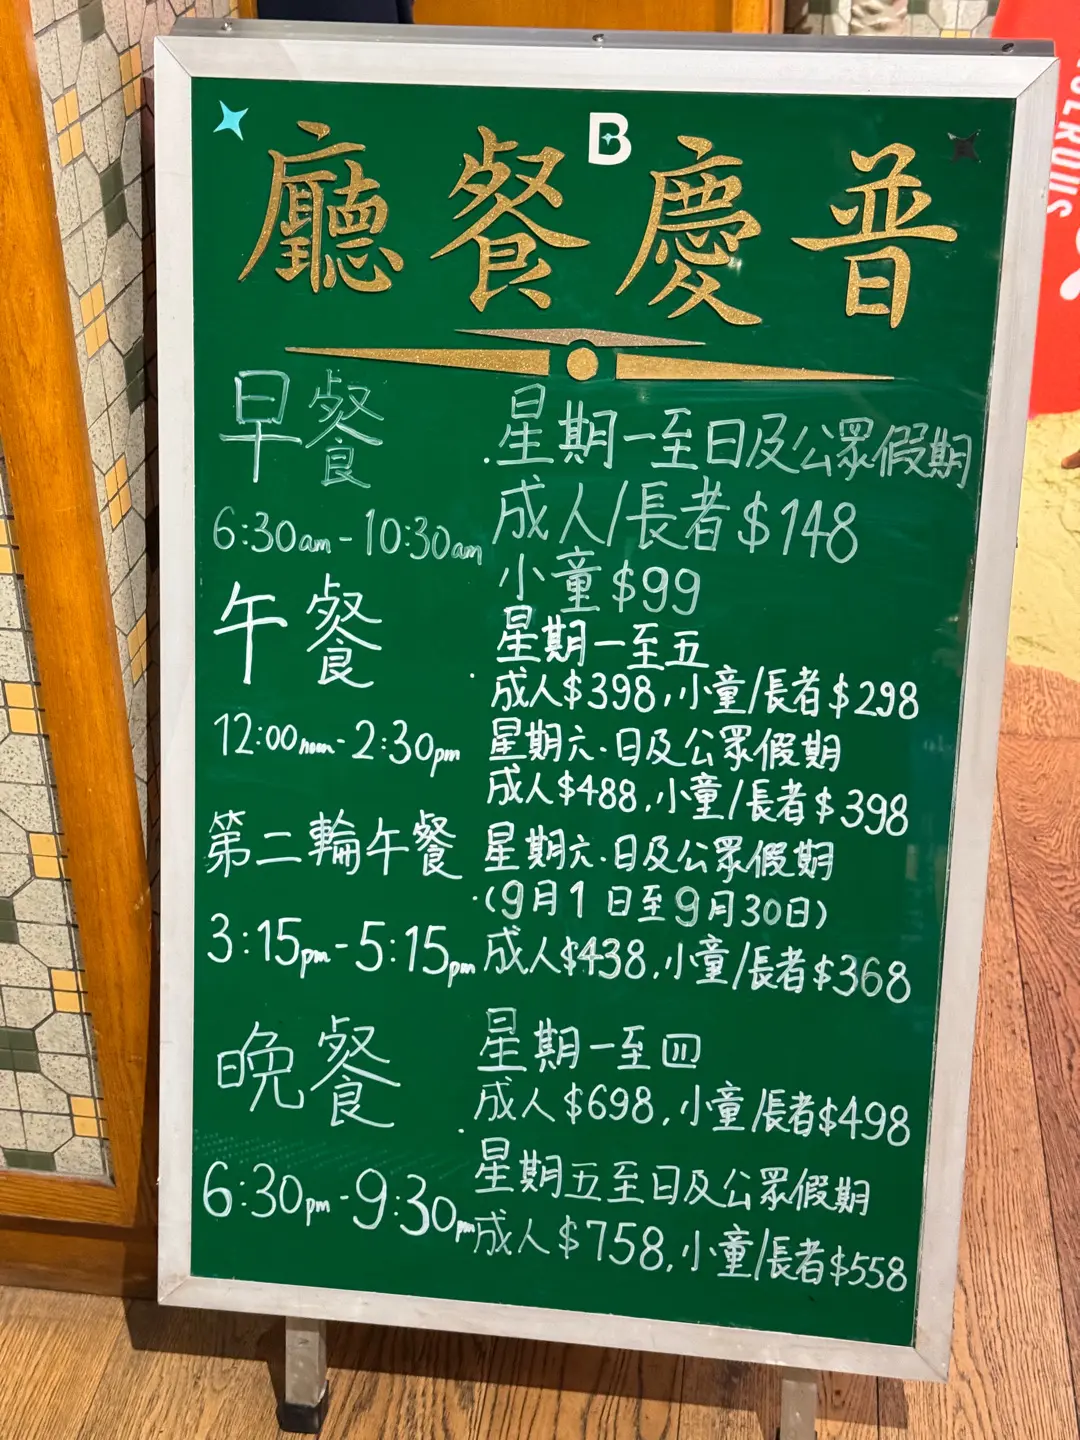 B
廳餐慶普
早餐
6:30am - 10:30am
星期一至日及公眾假期
成人/長者$148
小童$99
午餐
12:00noon - 2:30pm
星期一至五
成人$398,小童/長者$298
星期六.日及公眾假期
成人$488,小童/長者$398
第二輪午餐
3:15pm - 5:15pm
星期六.日及公眾假期
(9月1日至9月30日)
成人$438,小童/長者$368
晚餐
6:30pm - 9:30pm
星期一至四
成人$698,小童/長者$498
星期五至日及公眾假期
成人$758,小童/長者$558